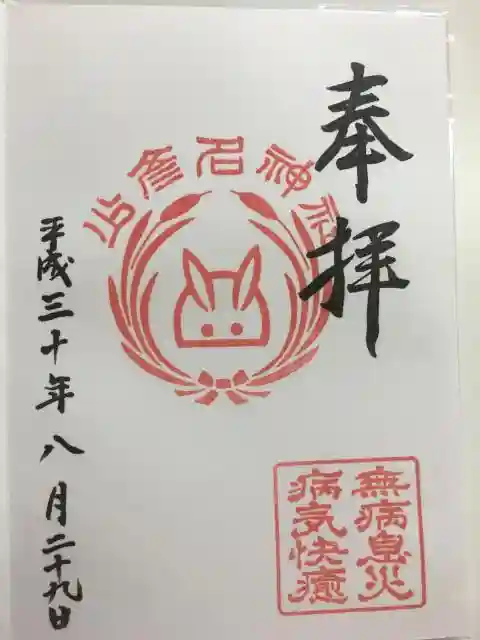 奉拝
少彦名神社
無病息災
病気快癒
平成三十年八月二十九日